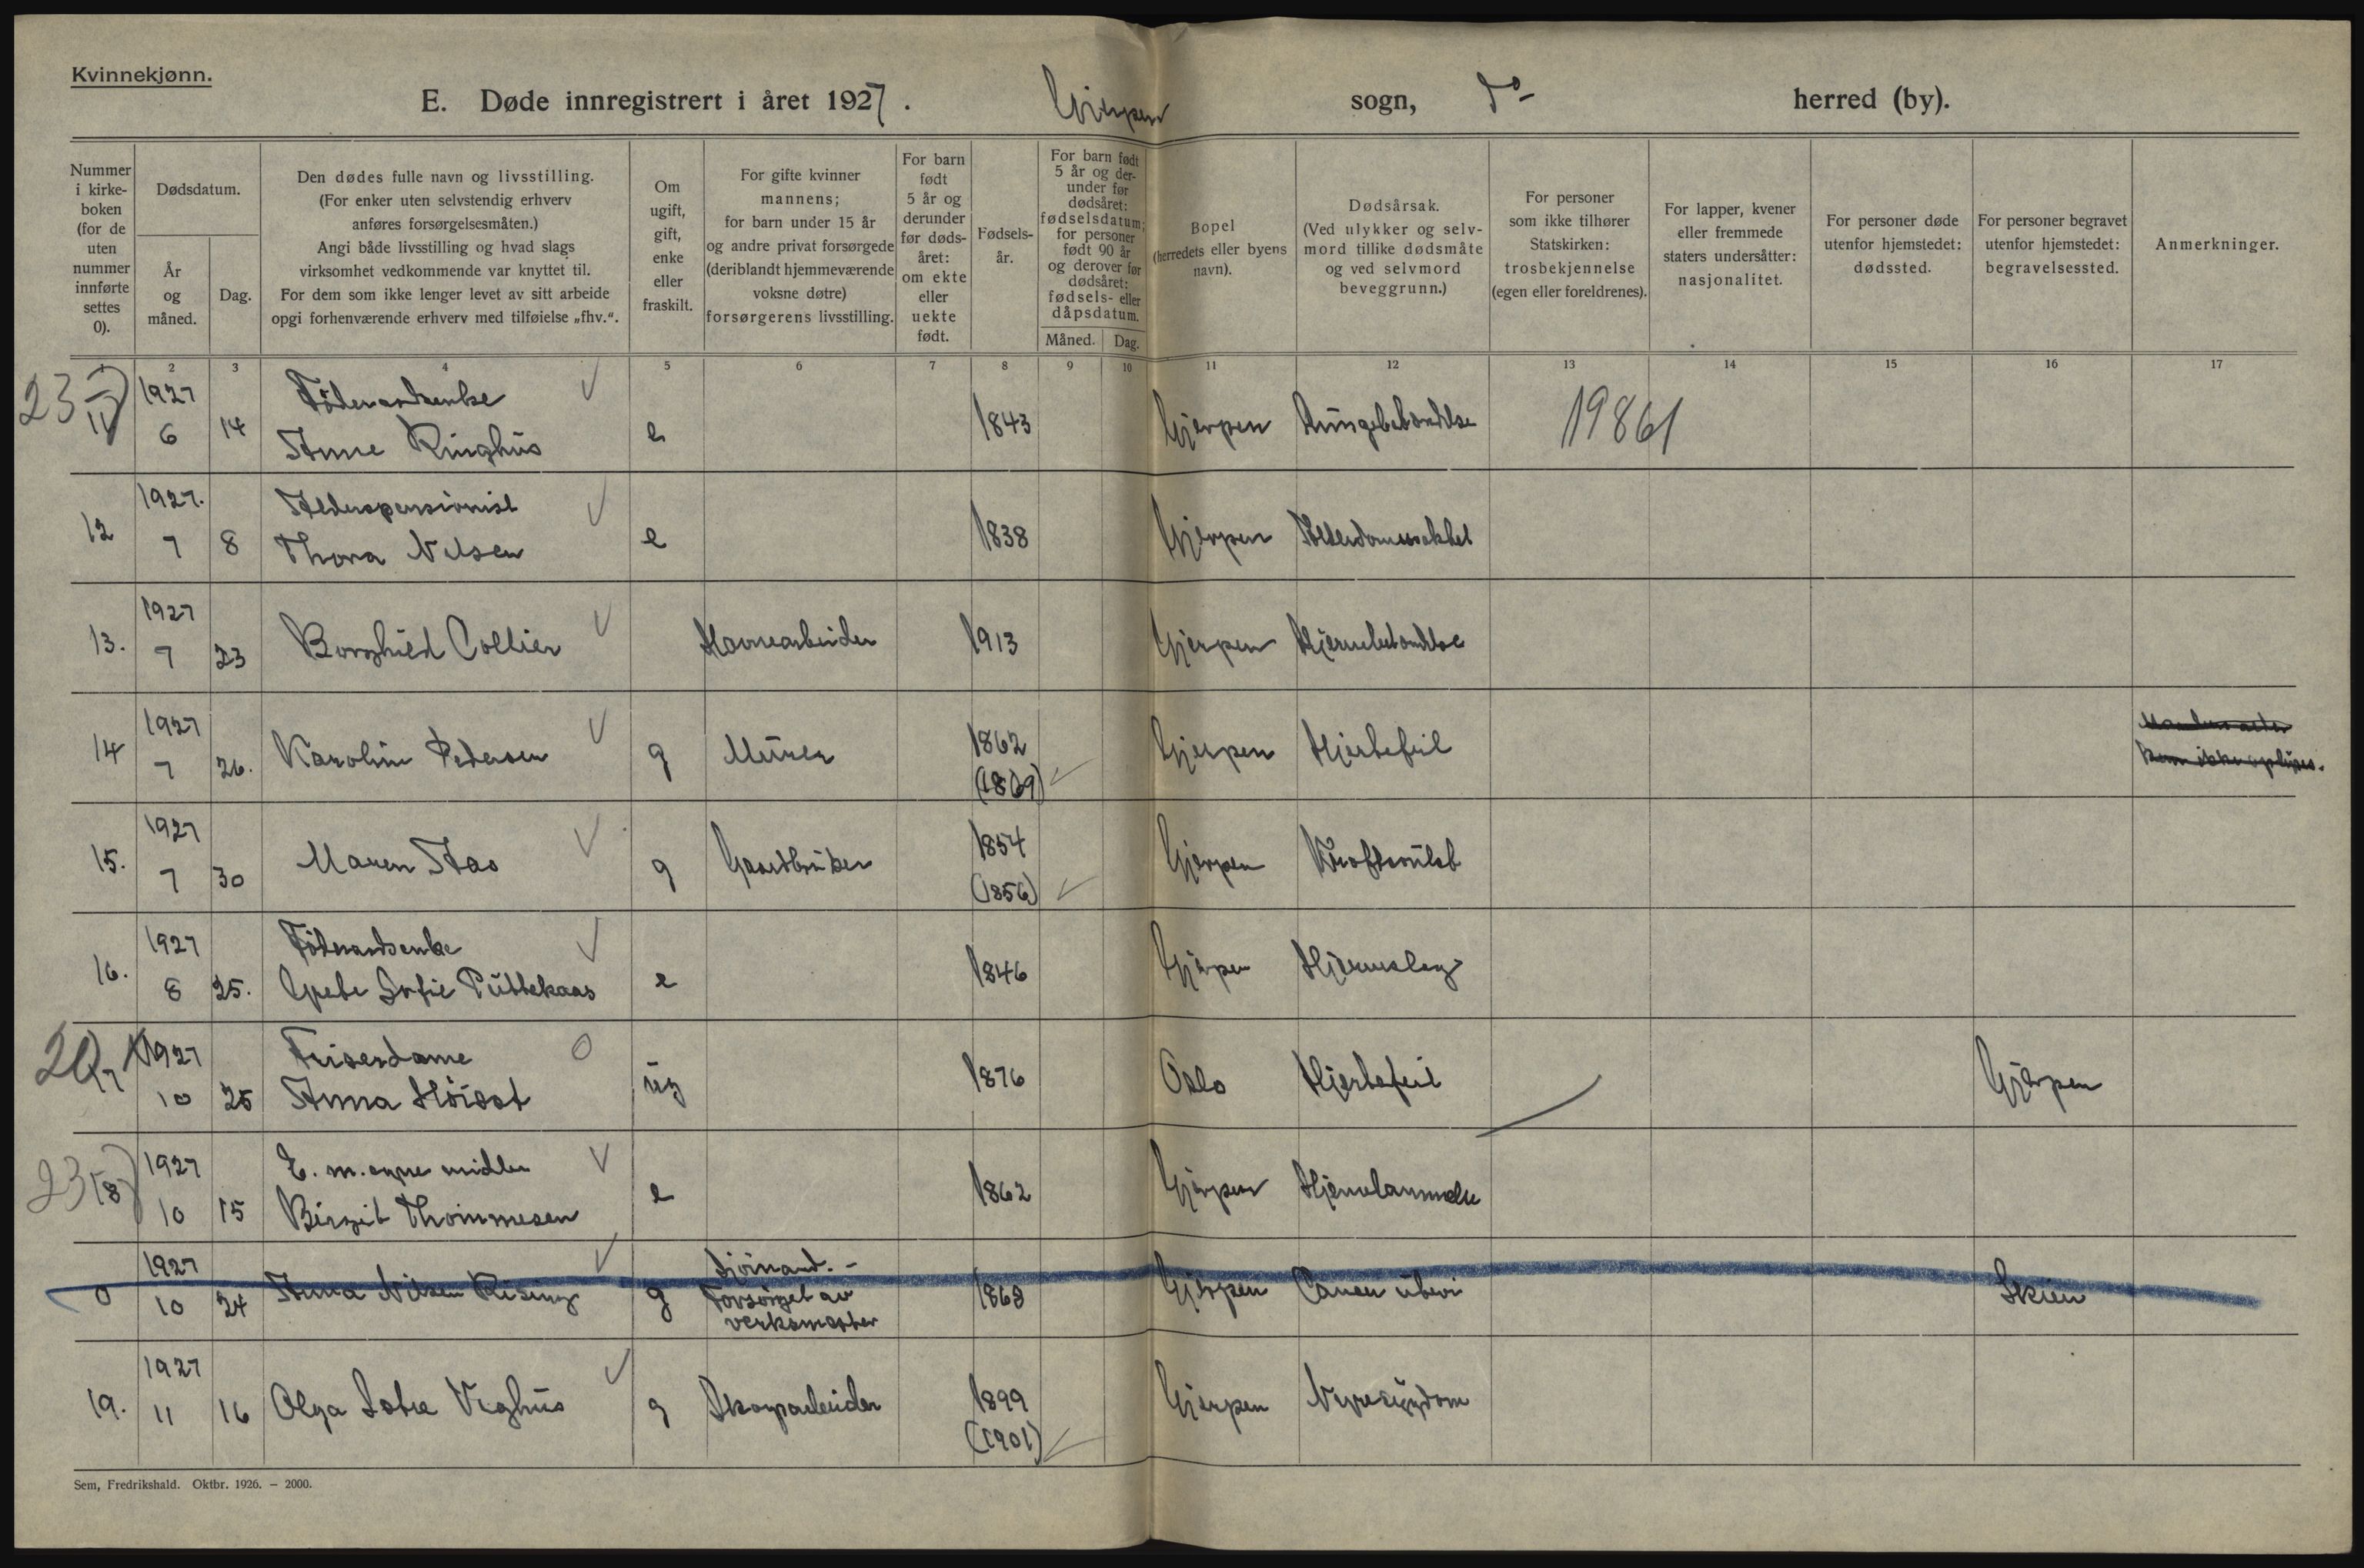 Kvinnekjønn.
E. Døde innregistrert i året 1927. Gjerpen sogn, do herred (by).
Nummer i kirkeboken (for de uten nummer innførte settes 0).
Dødsdatum.
År og måned.
Dag.
Den dødes fulle navn og livsstilling.
(For enker uten selvstendig erhverv
anføres forsørgelsesmåten.)
Angi både livsstilling og hvad slags
virksomhet vedkommende var knyttet til.
For dem som ikke lenger levet av sitt arbeide
opgi forhenværende erhverv med tilføielse „fhv.“.
Om ugift, gift, enke eller fraskilt.
For gifte kvinner
mannens;
for barn under 15 år
og andre privat forsørgede
(deriblandt hjemmeværende
voksne døtre)
forsørgerens livsstilling.
For barn født 5 år og derunder før dødsåret: om ekte eller uekte født.
Fødselsår.
For barn født 5 år og derunder før dødsåret: fødselsdatum; for personer født 90 år og derover før dødsåret: fødsels- eller dåpsdatum.
Måned. Dag.
Bopel
(herredets eller byens
navn).
Dødsårsak.
(Ved ulykker og selvmord tillike dødsmåte
og ved selvmord
beveggrunn.)
For personer
som ikke tilhører
Statskirken:
trosbekjennelse
(egen eller foreldrenes).
For lapper, kvener
eller fremmede
staters undersåtter:
nasjonalitet.
For personer døde
utenfor hjemstedet:
dødssted.
For personer begravet
utenfor hjemstedet:
begravelsessted.
Anmerkninger.
1 2 3 4 5 6 7 8 9 10 11 12 13 14 15 16 17
23 11 1927 6 14 Føderaadsenke
Anne Ringhus e 1843 Gjerpen Lungebetændelse 19861
12 1927. 7 8 Alderspensionist
Thora Nilsen e 1838 Gjerpen Alderdomssvakhet
13. 1927 7 23 Borghild Collier Havnearbeider 1913 Gjerpen Hjernebetændelse
14 1927 7 26. Karoline Pedersen g Murer 1862
(1869) Gjerpen Hjertefeil
kan ikke oplyses.
15. 1927 7 30 Maren Aas g Gaardbruker 1854
(1856) Gjerpen Kræftsvulst
16. 1927 8 25. Føderaadsenke
Grete Sofie Puttekaas e 1846 Gjerpen Hjerneslag
20 17 1927 10 25 Friserdame
Anna Höidst ug 1876 Oslo Hjertefeil Gjerpen
23 18 1927 10 15 E. m. egne midler
Birgit Thommesen e 1862 Gjerpen Hjernelammelse
0 1927 10 24 Anna Nilsen Rising g Sjömand. -
Forsörget av
verksmester 1868 Gjerpen Cancer uteri Skien
19. 1927 11 16 Olga Lovise Veghus g Skogsarbeider
1899
(1901) Gjerpen Nyresygdom
Sem, Fredrikshald. Oktbr. 1926. – 2000.